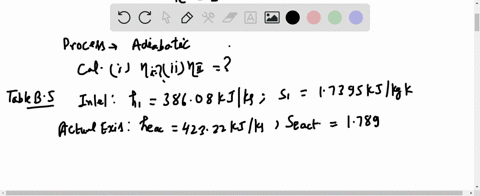 Process → Adiabatic
Cal. (i) ηi=?(ii) ηII = ?
Table B.5 Inlet: h1 = 386.08 kJ/kg ; s1 = 1.7395 kJ/kg k
Actual Exis: heac = 423.22 kJ/kg , Seact = 1.789